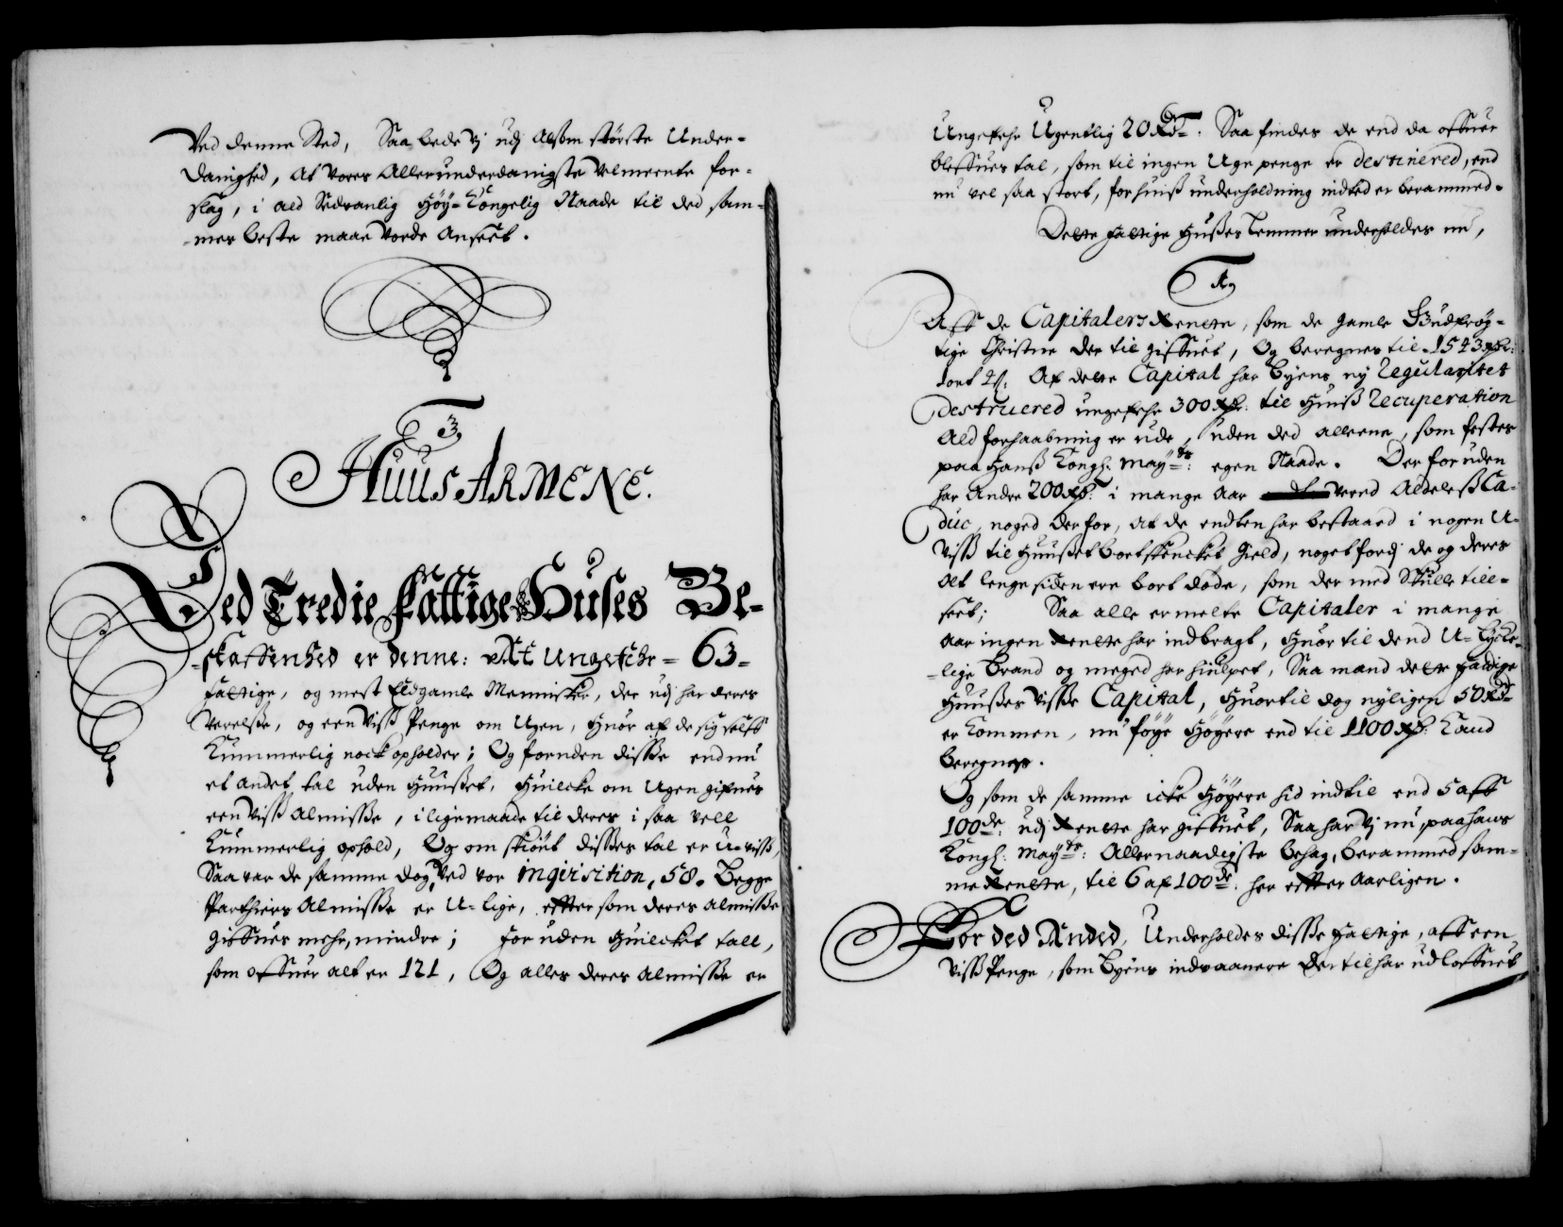 Ved denne Sted, Saa bede Vj udj Alsom störste Under-
danighed, At Vores Allerunderdanigste Velmeente for-
slag, i ald Sedvanlig Höy-Kongelig Naade til ded sam-
mes beste maae Vorde Anseet.
3
HUUSARMENE.
Ded Tredie Fattige Huses Be-
skaffenhed er denne: At ungefehr - 63 -
fattige, og mest Eldgamle Menniske, der udj har deres
Verelse, og een Viss Penge om Ugen, Huor af de sig self
Kummerlig nock opholder; Og foruden disse endnu
et andet tal uden Huuset, Huilcke om Ugen gifues
een Viss Almisse, i lige maade til deres i saa vell
Kummerlig ophold, Og om skiönt disses tal er U-viss,
Saa var de samme dog, Ved vor inqvisition, 58. Begge
Parthiers Almisse er U-lige, effter som deres almisse
giffues mehr, mindre; for uden Huilcket tall,
som offuer alt er 121, Og alles deres almisse er
Ungefehr Ugentlig 20 Rdr. Saa findes de end da offuer
bleffues tal, som til ingen Ugepenge er destinered, end
nu vel saa stort, for huiss underholdning indted er berammed.
Dette fattige Huses Lemmer underholdes nu,
1.
Aff de Capitalers Rente, som de gamle Gudfrög-
tige Christne der til giffuet, Og beregnes til 1543 Rdr:
Af dette Capital har Byens ny Regularitet
destruered ungefehr 300 Rdr. til Huiss recuperation
Ald forhaabning er ude, uden ded alleene, som festes
paa Hans Kongl: Mayts: egen Naade. Der foruden
har Andre 200 Rdr. i mange Aar vered Aldeless Ca-
duc, noged derfor, at de endten har bestaaed i nogen U-
viss til Huuset bortskencket Gield, noget fordj de og deres
Alt lenge siden ere bort döde, som der med skulle till-
seet; Saa alle ermelte Capitaler i mange
Aar ingen Rente har indbragt, Huor til dend U-lycke-
lige Brand og meged har hiulpet, Saa mand dette fattige
Huuses Visse Capital, Huortil dog nyligen 50 Rdr
er kommen, nu föye Höyere end til 1100 Rdr. Kand
beregnes.
Og som de samme icke Höyere hid indtil end 5 aff
100de: udj Rente har giffuet, Saa har Vj nu, paa Hans
Kongl: Mayts: Allernaadigste behag, berammed sam-
me Rente, til 6 af 100de: her effter Aarligen.
For ded Anded, Underholdes disse fattige, aff een
Viss Penge, som Byens indvaanere der til har udloffuet